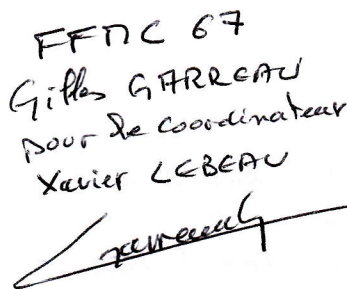 FFMC 67
Gilles GARREAU
pour le coordinateur
Xavier LEBEAU